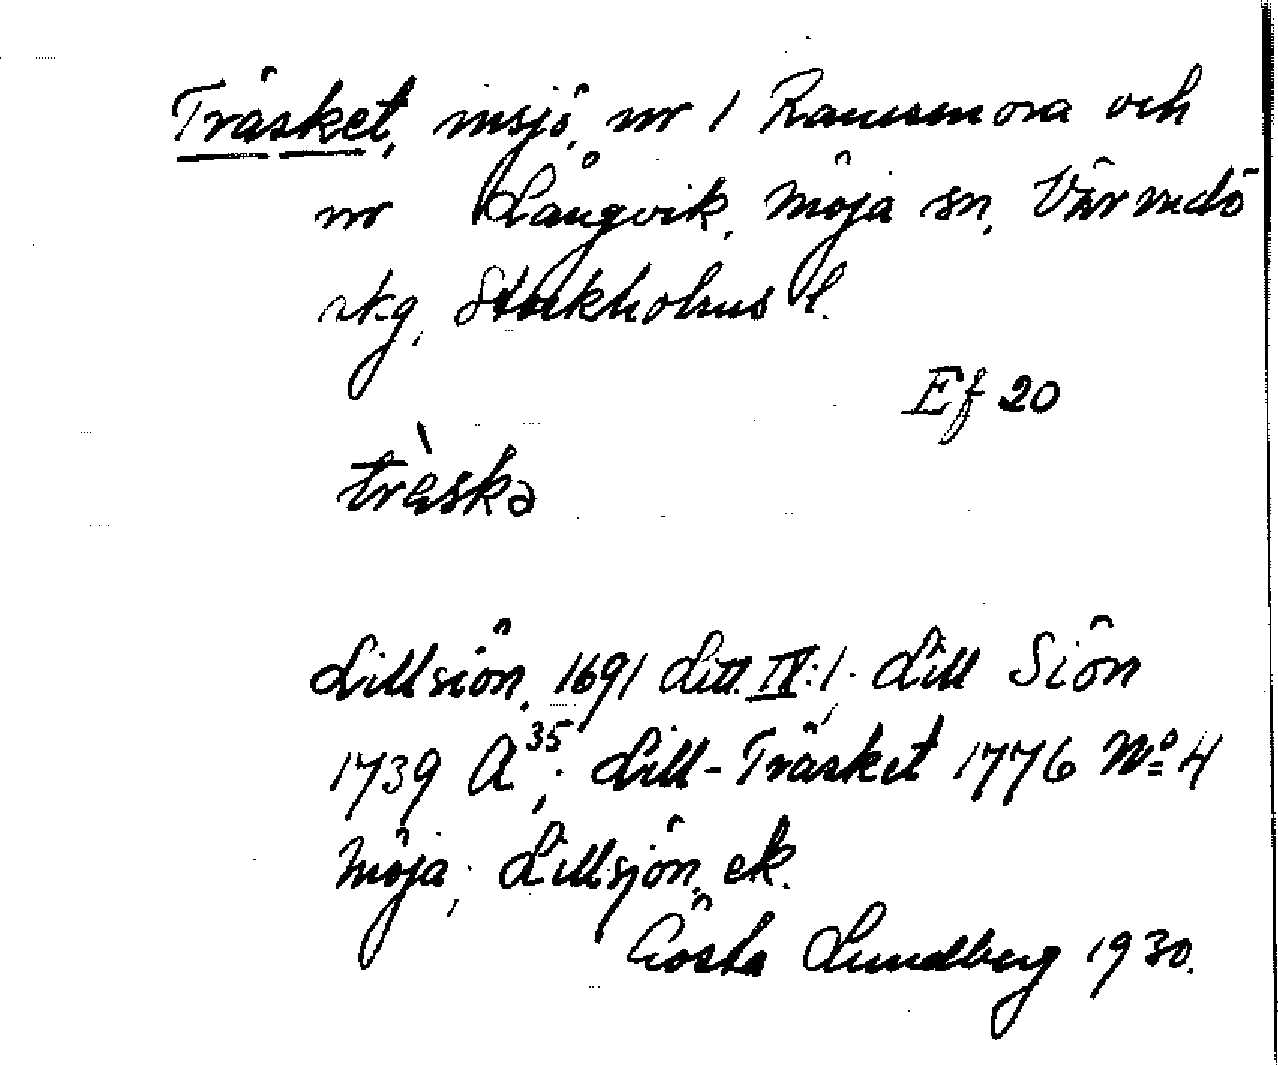 Träsket, insjö, nr 1 Ramsmora och
nr Långvik, Möja sn, Värmdö
skg, Stockholms l.
Ef 20
trὰskə
Lillsiön, 1691 Litt. IV:1; Lill Siön
1739 A³⁵; Lill-Träsket 1776 Nº 4
Möja; Lillsjön, ek.
Gösta Lundberg 1930.